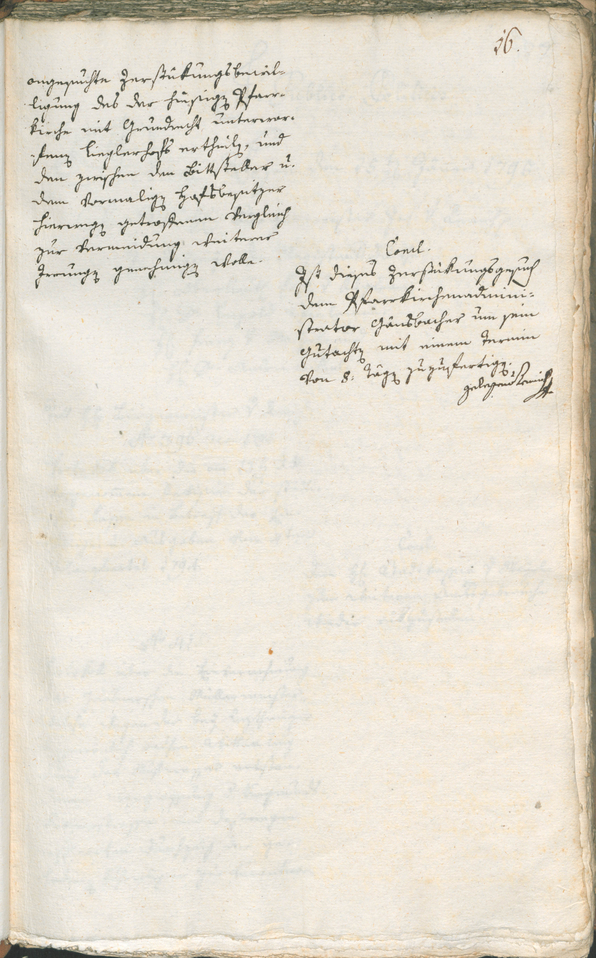 16.
angesuchte Zerstükungsbewil-
ligung des der hiesigen Pfarr-
kirche mit Grundrecht unterwor-
fenen Zieglerhofs ertheilen, und
den zwischen dem Bittsteller u.
dem vormaligen Hofsbesitzer
hierwegen getroffenen Vergleich
zur Vermeidung weiterer
Irrungen genehmigen wolle.
Concl.
Ist dieses Zerstükungsgesuch
dem Pfarrkirchenadmini-
strator Gänsbacher um sein
Gutachten mit einem Termin
von 8: Tägen zuzufertigen.